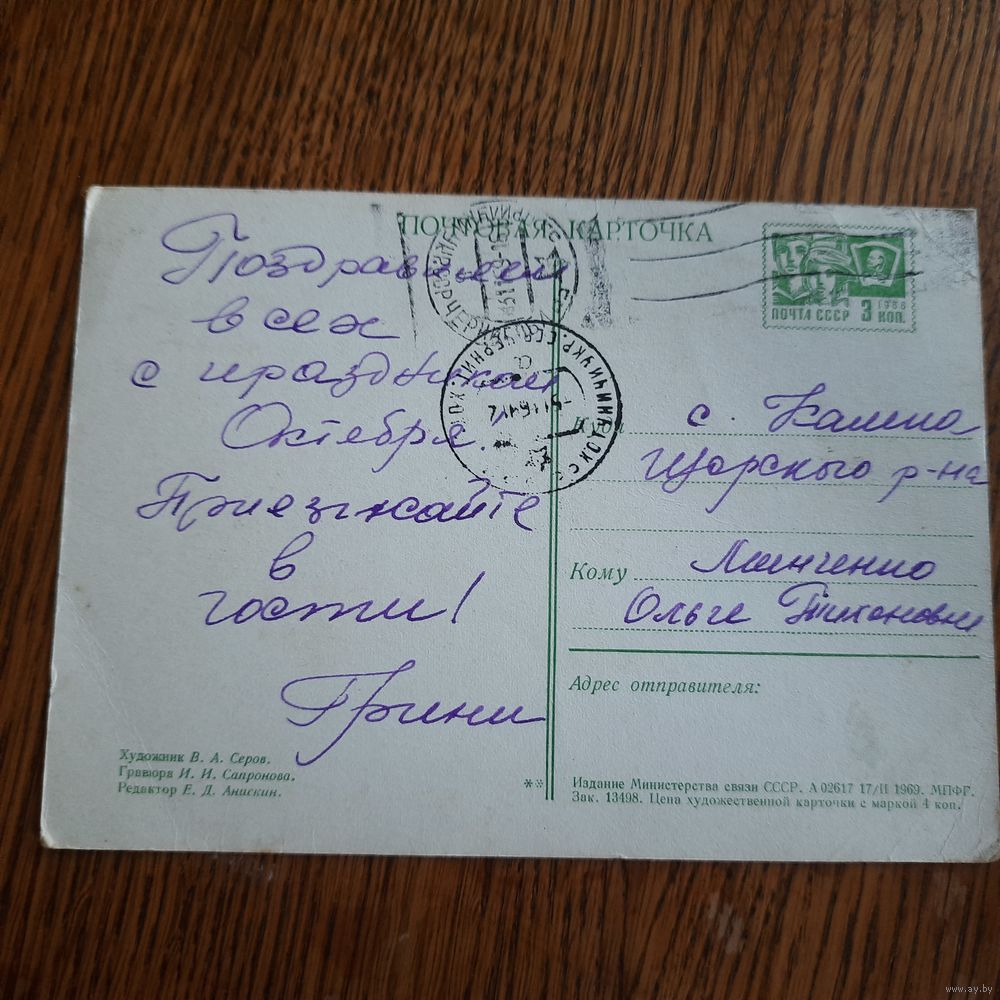 ПОЧТОВАЯ КАРТОЧКА
Поздравляем
всех
с праздником
Октября.
Приезжайте
в
гости!
Грини
ПОЧТА СССР 3 КОП.
1966
с. Камка
Щорского р-на
Кому Линченко
Ольге Тихоновне
Адрес отправителя:
Художник В. А. Серов.
Гравюра И. И. Сапронова.
Редактор Е. Д. Анискин.
** Издание Министерства связи СССР. А 02617 17/II 1969. МПФГ.
Зак. 13498. Цена художественной карточки с маркой 4 коп.
www.ay.by